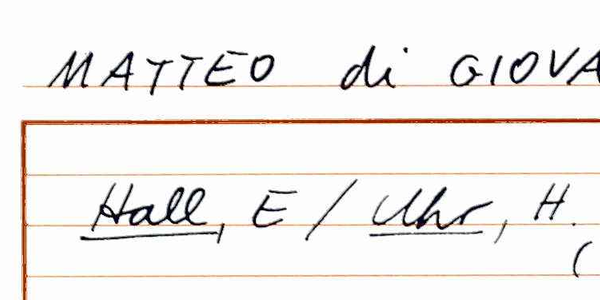 MATTEO di GIOVA
Hall, E / Uhr, H.
(